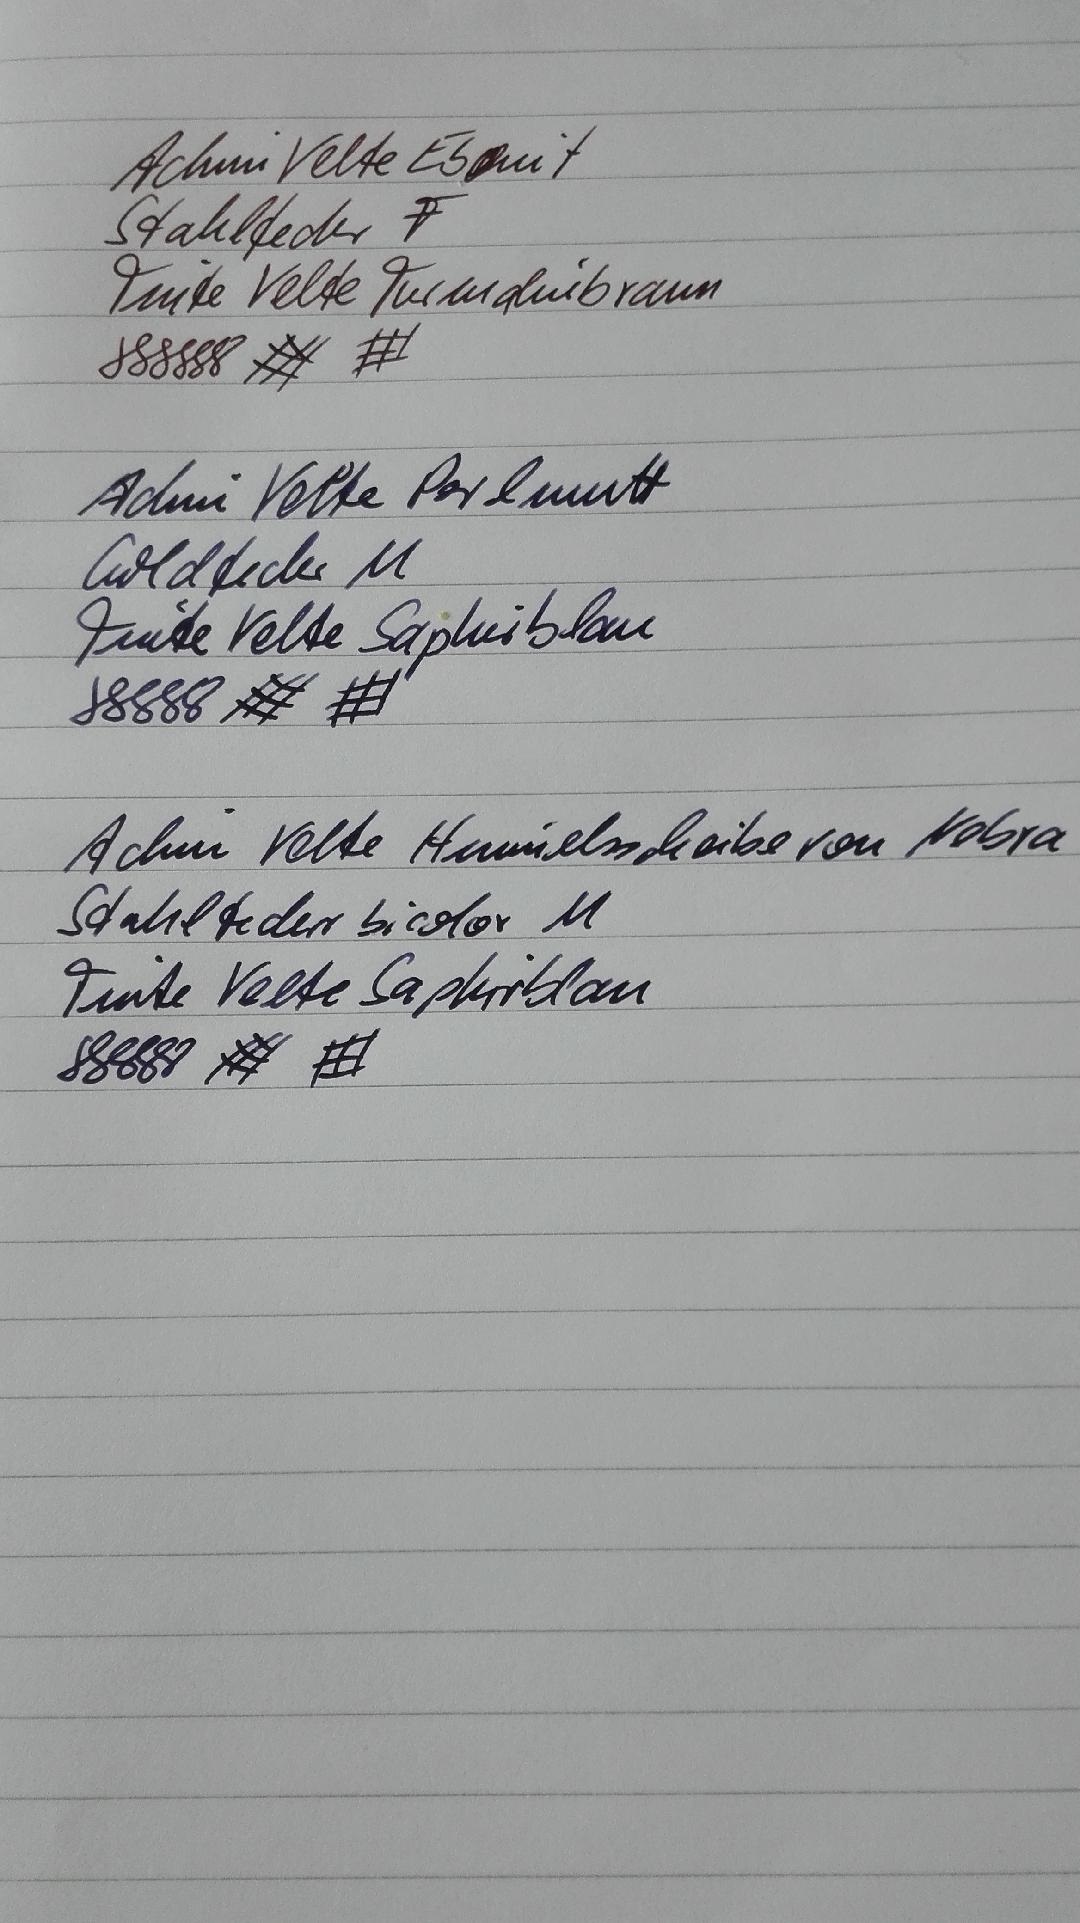 Achim Velte Ebonit
Stahlfeder F
Tinte Velte Turmalinbraun
888888 # #
Achim Velte Perlmutt
Goldfeder M
Tinte Velte Saphirblau
88888 # #
Achim Velte Himmelsscheibe von Nebra
Stahlfeder bicolor M
Tinte Velte Saphirblau
88888 # #